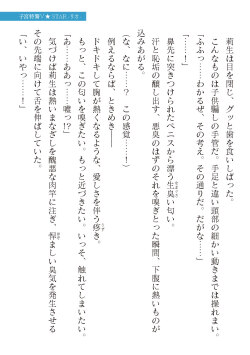 莉生は目を閉じ、グッと歯を食いしばった。
こんなものは子供騙しの手管だ。手足と違い頭部の細かい動きまでは操れまい。
「ふふっ……わかるぜ、その考え。その通りだ。だがな……」
鼻先に突きつけられたペニスから漂う生臭い匂い。
汗と恥垢の醸し出す、悪臭のはずのそれを嗅ぎとった瞬間、下腹に熱いものが
込みあがる。
（な、なに……!?　この感覚……！）
例えるならば、ときめき――
ドキドキして胸が熱くなるような、愛しさを伴う疼き。
もっと、この匂いを嗅ぎたい。もっと近づきたい。いっそ、触れてしまいたい。
（あ……ああっ……嘘っ!?）
気づけば莉生は熱いまなざしを醜悪な肉竿に注ぎ、悍ましい臭気を発生させる
その先端に向けて舌を伸ばしていた。
「い、いやっ……！」